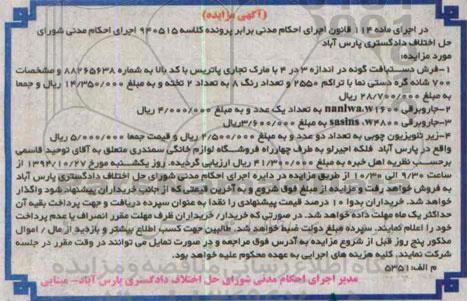 (آگهی مزایده)
در اجرای ماده ۱۱۴ قانون اجرای احکام مدنی برابر پرونده کلاسه ۹۴۰۵۱۵ اجرای احکام مدنی شورای
حل اختلاف دادگستری پارس آباد
مورد مزایده:
۱-فرش دستبافت گونه در اندازه ۳ در ۴ با مارک تجاری پاتریس با کد بالا به شماره ۸۸۲۶۵۶۳۸ و مشخصات
۷۰۰ شانه گره دستی نما با تراکم ۲۵۵۰ و تعداد رنگ ۸ به تعداد ۲ تخته و به مبلغ ۱۴/۳۵۰/۰۰۰ ریال و جمعا
به مبلغ ۲۸/۷۰۰/۰۰۰ ریال
۲-جاروبرقی naniwa.w۱۶۰۰ به تعداد یک عدد و به مبلغ ۴/۰۰۰/۰۰۰ ریال
۳-جاروبرقی sasins .w۴۸۰۰ به مبلغ ۳/۶۰۰/۰۰۰ریال
۴-زیر تلویزیون چوبی به تعداد دو عدد و به مبلغ ۲/۵۰۰/۰۰۰ ریال و قیمت جمعا ۵/۰۰۰/۰۰۰ ریال
واقع در پارس آباد فلکه اجیرلو به طرف چهارراه فروشگاه لوازم خانگی سمندری متعلق به آقای توحید قاسمی
برحسب نظریه اهل خبره به مبلغ ۴۱/۳۰۰/۰۰۰ ریال ارزیابی گردیده. روز یکشنبه مورخ ۱۳۹۴/۱۰/۲۷ از
ساعت ۹/۳۰ الی ۱۰/۳۰ از طریق مزایده در دایره اجرای احکام مدنی شورای حل اختلاف دادگستری پارس آباد
به فروش خواهد رفت و مزایده از مبلغ فوق شروع و به آخرین قیمتی که از جانب خریداران پیشنهاد شود واگذار
خواهد شد. خریداران بدوا ۱۰ درصد قیمت پیشنهادی را نقدا به عنوان سپرده دریافت و جهت پرداخت بقیه آن
حداکثر یک ماه مهلت داده خواهد شد. در صورتی که خریدار/ خریداران ظرف مهلت مقرر انصراف یا عدم پرداخت
خود را اعلام نمایند. سپرده مبلغ دولت ضبط خواهد شد. طالبین جهت کسب اطلاع بیشتر و بازدید از مال / اموال
مذکور پنج روز قبل از شروع مزایده به آدرس فوق مراجعه و در صورت تمایل می توانند در وقت مقرر در جلسه
شرکت نمایند. کلیه هزینه های اجرایی به عهده محکوم علیه خواهد بود.
م الف: ۵۳۵۱
مدیر اجرای احکام مدنی شورای حل اختلاف دادگستری پارس آباد- مینایی